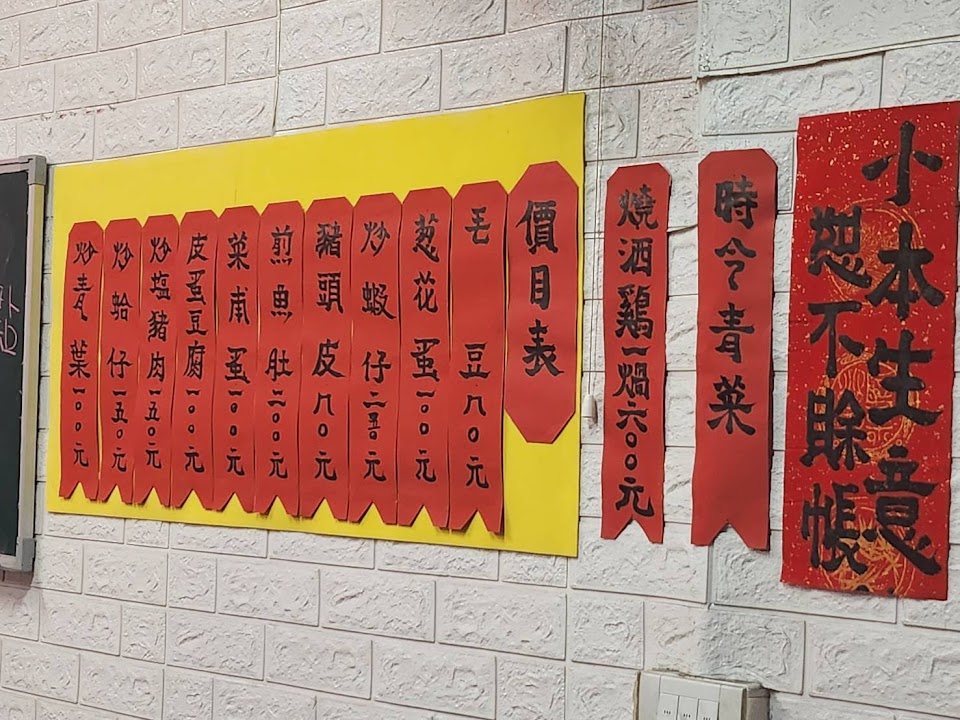 小本生意
恕不賒帳
時令青菜
燒酒鷄一鍋六〇〇元
價目表
毛豆八〇元
葱花蛋一〇〇元
炒蝦仔二五〇元
豬頭皮八〇元
煎魚肚二〇〇元
菜甫蛋一〇〇元
皮蛋豆腐一〇〇元
炒塩豬肉一五〇元
炒蛤仔一五〇元
炒青葉一〇〇元